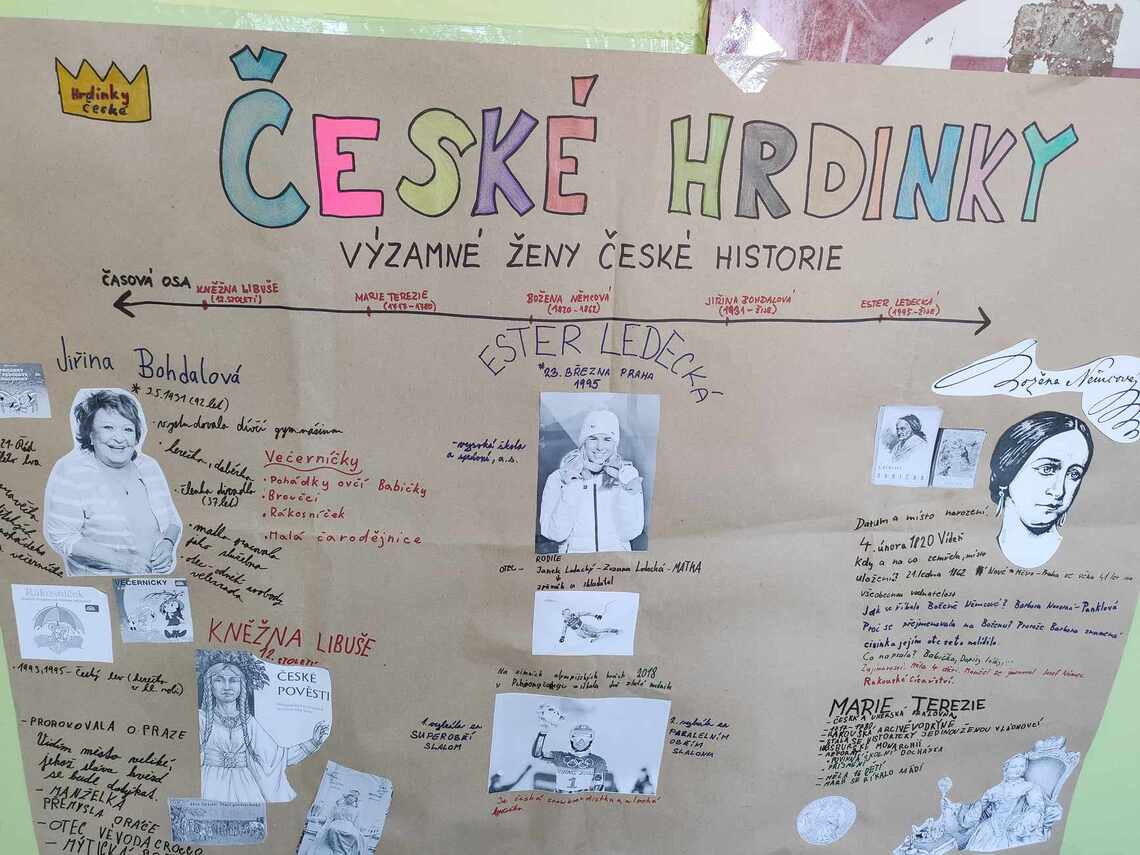 Hrdinky
české
ČESKÉ HRDINKY
VÝZAMNÉ ŽENY ČESKÉ HISTORIE
ČASOVÁ OSA
KNĚŽNA LIBUŠE
(12.STOLETÍ)
MARIE TEREZIE
(1717-1780)
BOŽENA NĚMCOVÁ
(1820-1862)
JIŘINA BOHDALOVÁ
(1931-ŽIJE)
ESTER LEDECKÁ
(1995-ŽIJE)
Jiřina Bohdalová
* 3.5.1931 (92 let)
• vystudovala dívčí gymnázium
• herečka, dabérka
• členka divadla
(37 let)
• matka pracovala
jako služebná
Večerníčky
• Pohádky ovčí Babičky
• Broučci
• Rákosníček
• Malá čarodějnice
Rákosníček
VEČERNÍČKY
• 1993, 1995 - Český lev (herečka
v hl. roli)
KNĚŽNA LIBUŠE
12.STOLETÍ
ČESKÉ
POVĚSTI
- PROROKOVALA O PRAZE
Vidím město veliké,
jehož sláva hvězd
se bude dotýkat.
- MANŽELKA
PŘEMYSLA ORÁČE
- OTEC VÉVODA CROCCO
- MÝTICKÁ
ESTER LEDECKÁ
*23. BŘEZNA PRAHA
1995
- vysoká škola
a.s.
RODIČE
OTEC - Janek Ledecký - Zuzana Ledecká - MATKA
zpěvák a skladatel
Na zimních olympijských hrách 2018
v Pchjongčchangu získala dvě zlaté medaile
1.
SUPEROBŘÍ
SLALOM
2.
PARALELNÍM
OBŘÍM
SLALOMU
Je česká snowboardistka a
Božena Němcová
BABIČKA
Datum a místo narození:
4. února 1820 Vídeň
Kdy a na co zemřela, místo
uložení: 21. ledna 1862
Jak se říkalo Boženě Němcové? Barbora Novotná - Panklová
Proč se přejmenovala na Boženu? Protože Barbora znamená
cizinka jejím otc se to nelíbilo.
Co napsala? Babička,
Zajímavosti: Měla 4 děti. Manžel se jmenoval Josef Němec
Rakouské císařství.
MARIE TEREZIE
- ČESKÁ A UHERSKÁ KRÁLOVNA
- 1717-1780
- RAKOUSKÁ ARCIVÉVODKYNĚ
- STALA SE HISTORICKY JEDINOU ŽENOU VLÁDNOUCÍ
HABSBURSKÉ MONARCHII
- POVINNÁ ŠKOLNÍ DOCHÁZKA
- PŘÍJMENÍ
- MĚLA 16 DĚTÍ